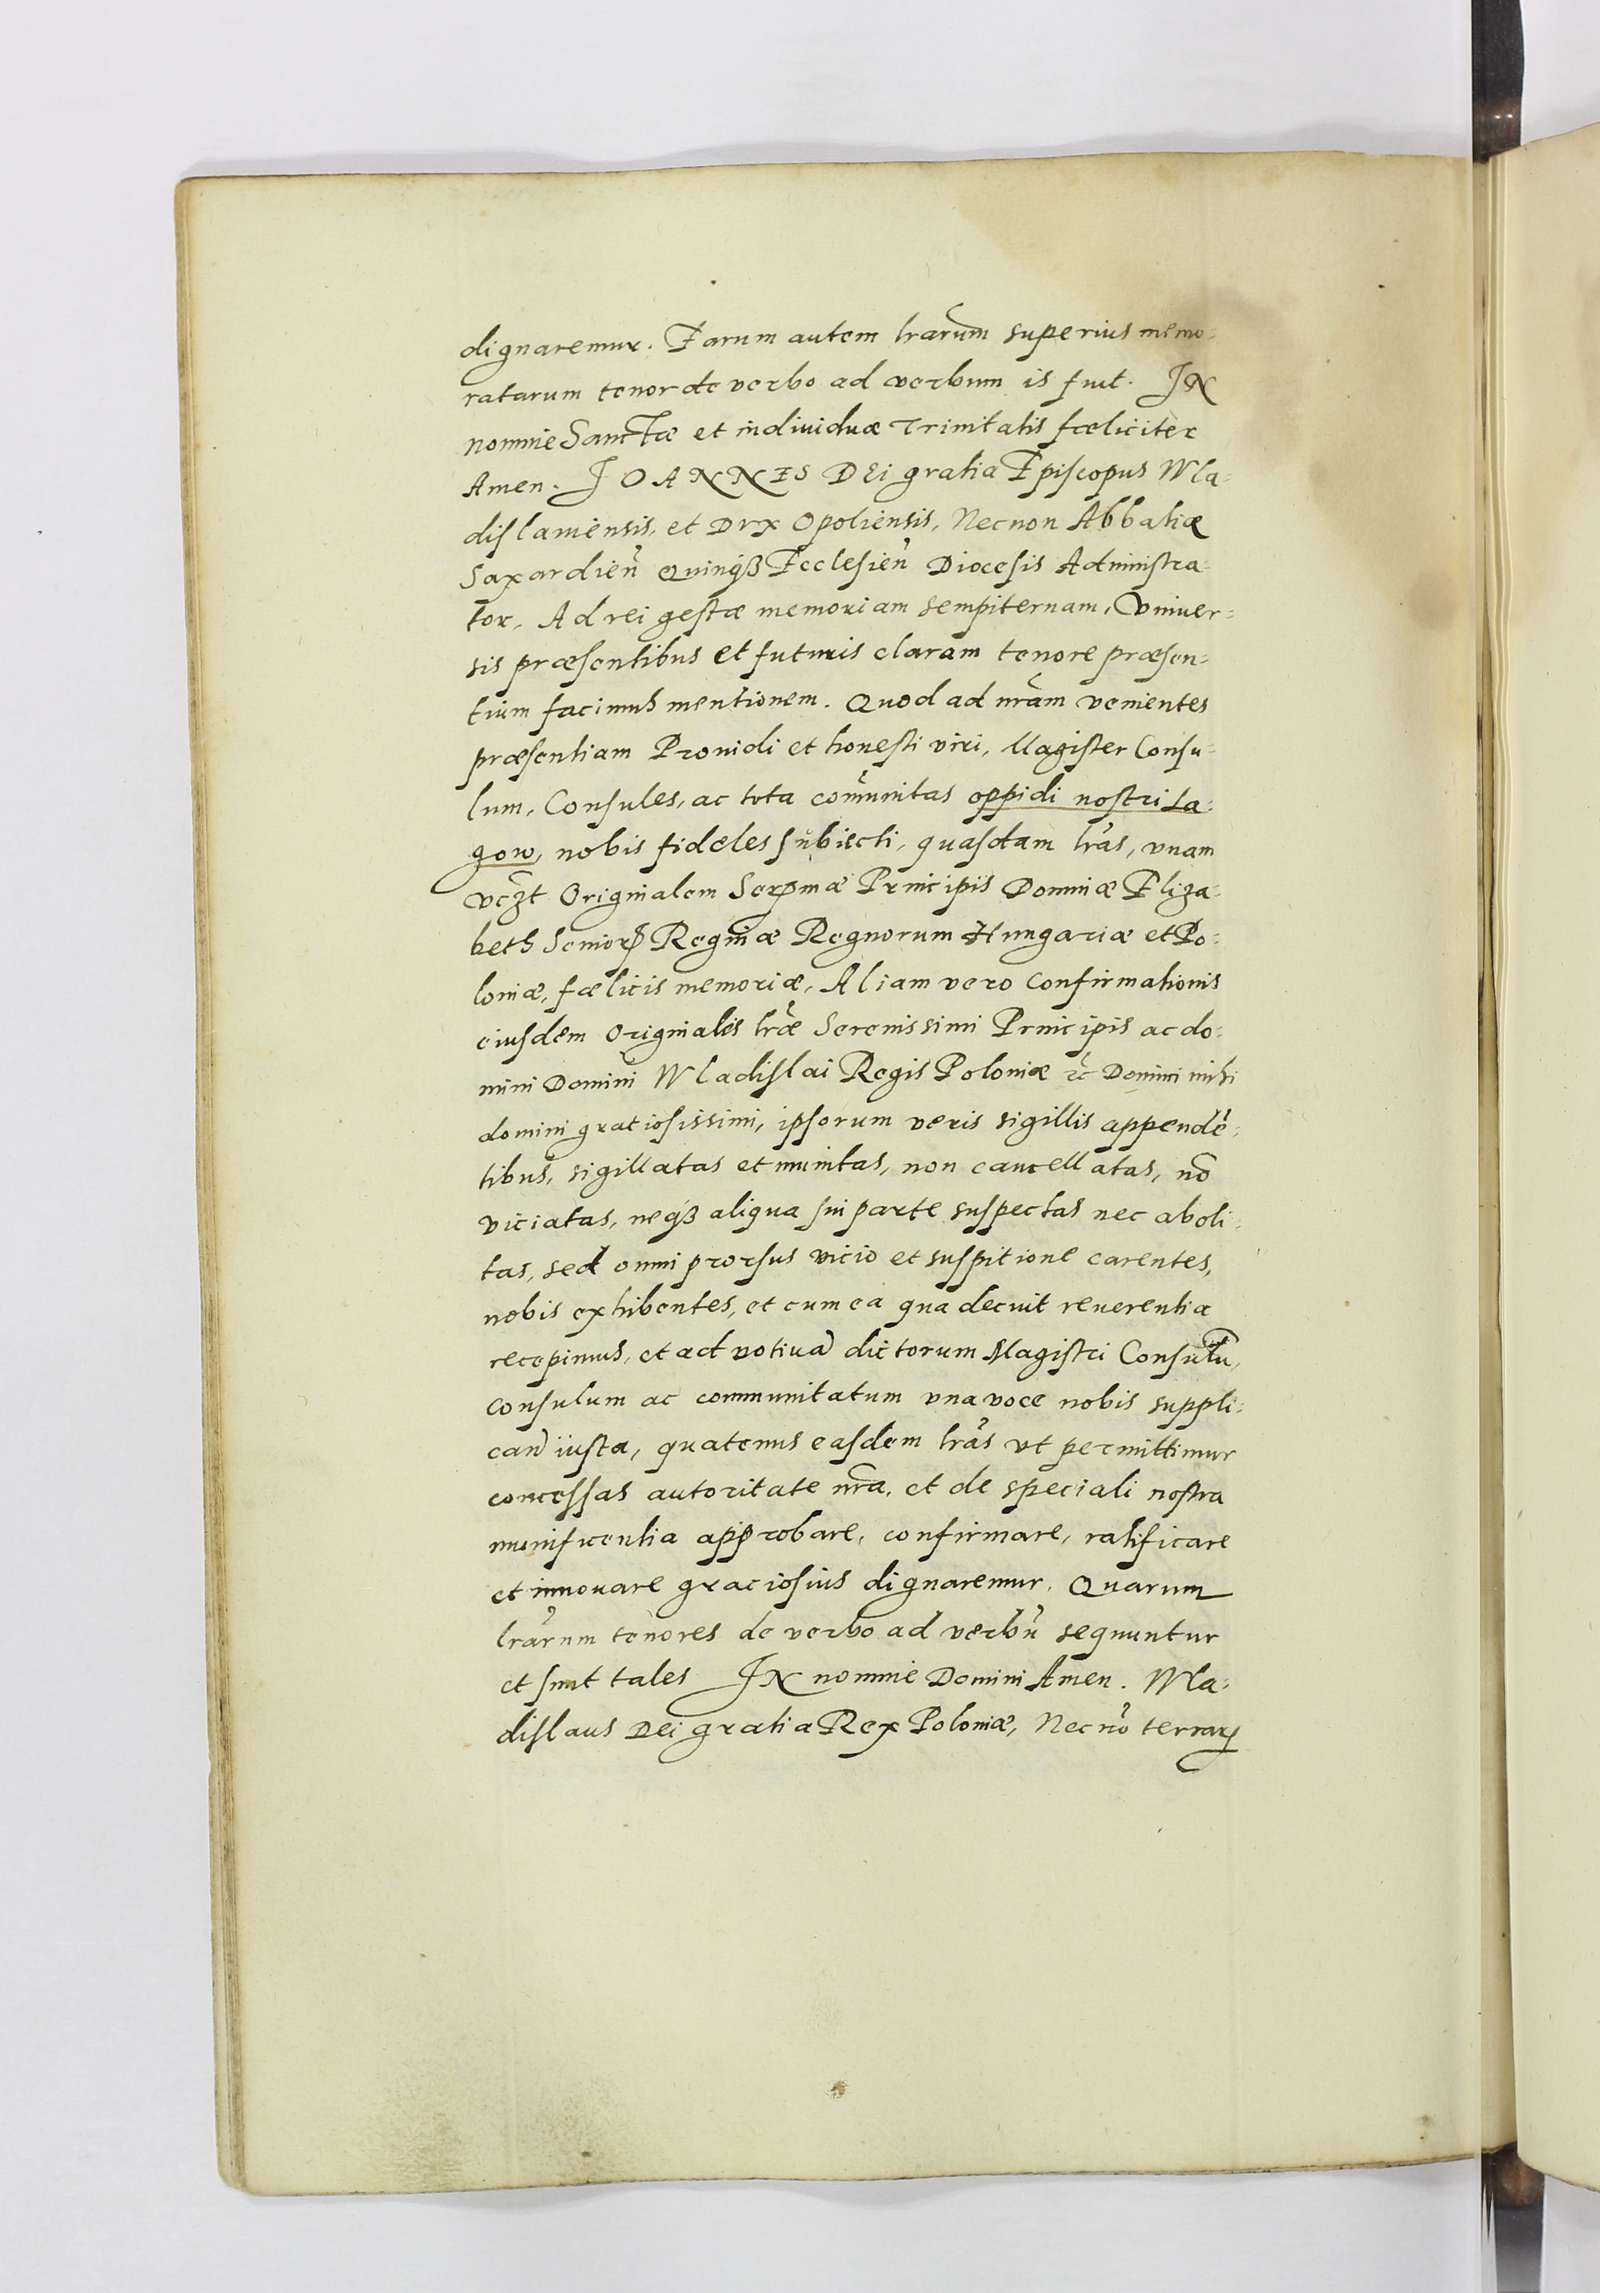 dignaremur. Earum autem lrarum superius memo:
ratarum tenor de verbo ad verbum is fuit. IN
nomine Sanctæ et individuæ Trinitatis fœliciter
Amen. IOANNES DEi gratia Episcopus Wla:
dislaviensis, et Dux Opoliensis, Necnon Abbatiæ
Saxardien̄ Quinqȝ Ecclesien̄ Diocesis Administra:
tor. Ad rei gestæ memoriam sempiternam, Vniver:
sis præsentibus et futuris claram tenore præsen:
tium facimus mentionem. Quod ad nr̄am venientes
præsentiam Prouidi et honesti viri, Magister Consu:
lum, Consules, ac tota com̄unitas oppidi nostri La:
gow, nobis fideles subiecti, quasdam lr̄as, vnam
vcz̄t Originalem Serenmæ Principis Dominæ Eliza:
beth Senior Reginæ Regnorum Hungariæ et Po:
loniæ, fœlicis memoriæ, Aliam vero Confirmationis
eiusdem Originalis lr̄æ Serenissimi Principis ac do:
mini Domini Wladislai Regis Poloniæ ꝛc̄ Domini mihi
domini gratiosissimi, ipsorum veris sigillis appendē:
tibus, sigillatas et munitas, non cancellatas, nō
viciatas, neqȝ aliqua sui parte suspectas nec aboli:
tas, sed omni prorsus vicio et suspitione carentes,
nobis exhibentes, et cum ea qua decuit reuerentia
recepimus, et ad votiuā dictorum Magistri Consulū,
Consulum ac communitatum vna voce nobis suppli:
can̄ iusta, quatenus easdem lr̄as vt permittimur
concessas autoritate nr̄a, et de speciali nostra
munificentia approbare, confirmare, ratificare
et innouare graciosius dignaremur. Quarum
lr̄arum tenores de verbo ad verbū sequuntur
et sunt tales IN nomine Domini Amen. Wla:
dislaus Dei gratia Rex Poloniæ, Nec nō terrarꝝ